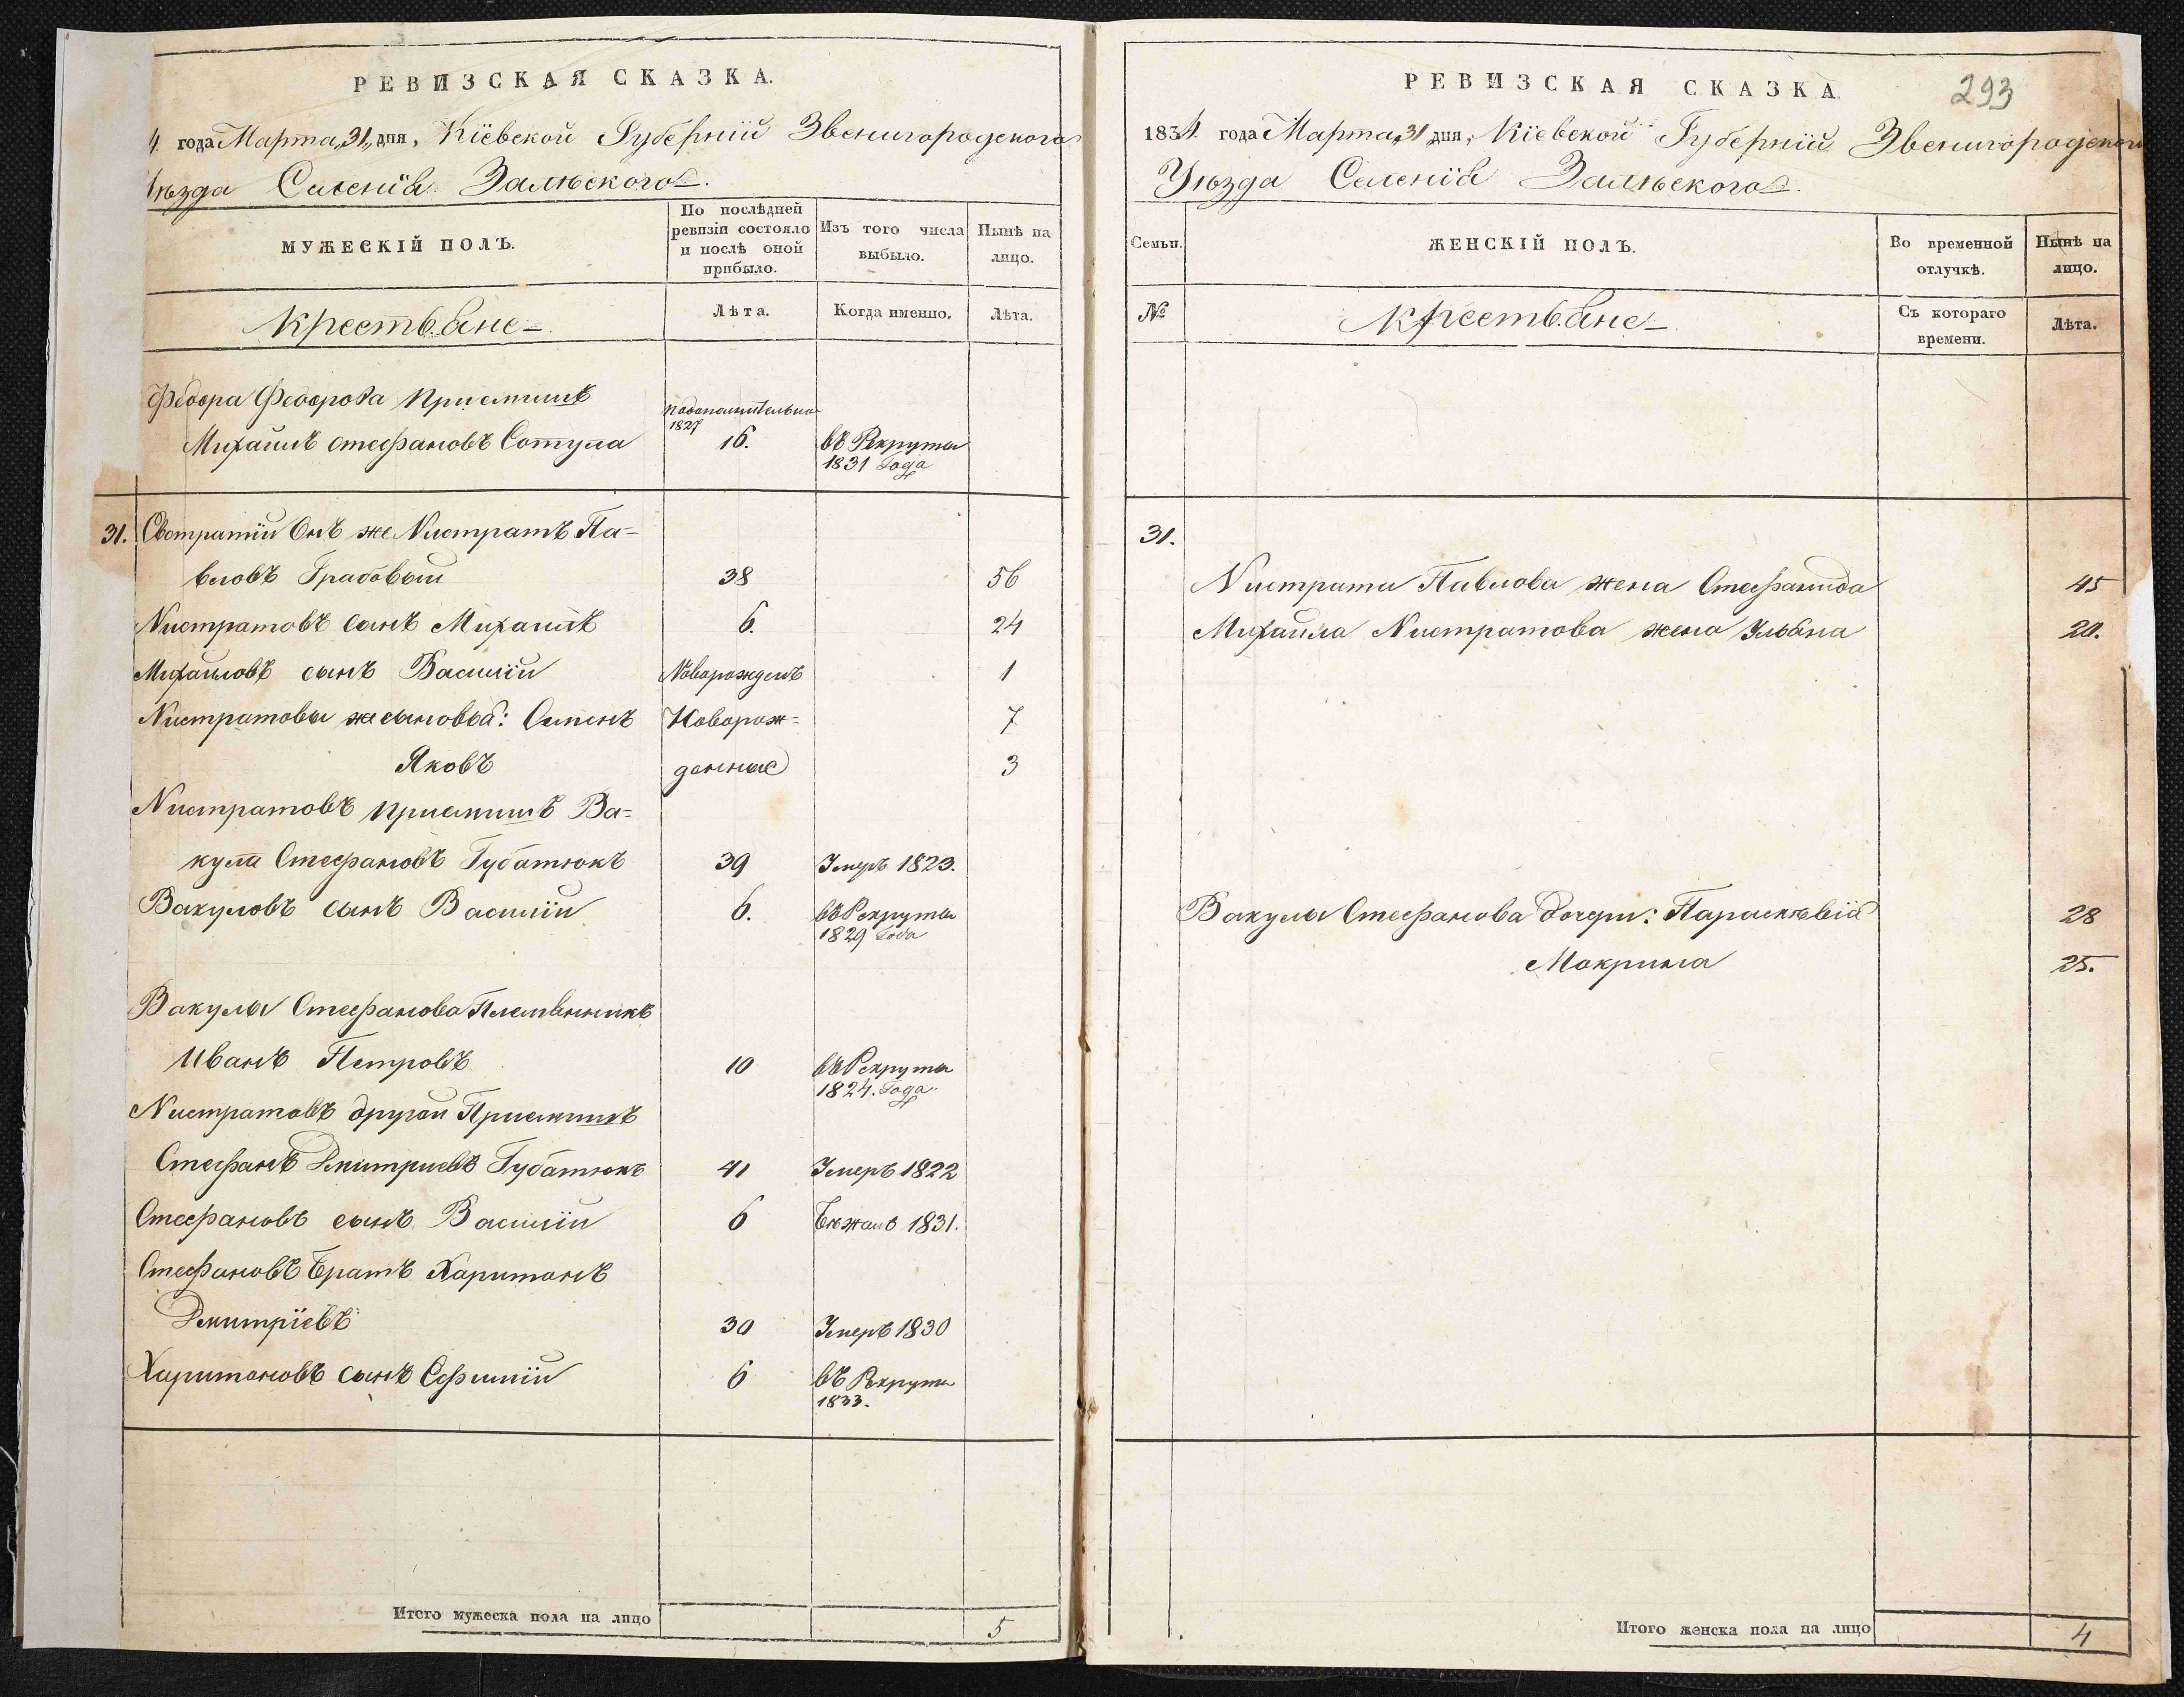 РЕВИЗСКАЯ СКАЗКА.
4. года Марта „31„ дня, Кіевской Губерніи Звенигородского
Уѣзда Селенія Залѣскаго.
МУЖЕСКІЙ ПОЛЪ.
По послѣдней ревизіи состояло и послѣ оной прибыло.
Изъ того числа выбыло.
Нынѣ на лицо.
Крестьяне
Лѣта.
Когда именно.
Лѣта.
Федора Федорова приемишъ
Михаилъ Стефановъ Сотула
1827
16.
въ Рекруты
1831 года
31. Евстратій Онъ же Нистратъ Па=
вловъ Грабовый 38 56
Нистратовъ сынъ Михаилъ 6. 24
Михаиловъ сынъ Василій Новорожденъ 1
Нистратовы же сыновья: Семенъ Новорож= 7
Яковъ денные 3
Нистратовъ приемишъ Ва=
кула Стефановъ Губатюкъ 39 Умеръ 1823.
Вакуловъ сынъ Василій 6. въ Рекруты
1829 года
Вакулы Стефанова Племянникъ
Иванъ Петровъ 10 въ Рекруты
1824. Года
Нистратовъ другой Приемишъ
Стефанъ Дмитриевъ Губатюкъ 41 Умеръ 1822
Стефановъ сынъ Василій 6 Бѣжалъ 1831.
Стефановъ Братъ Харитонъ
Дмитріевъ 30 Умеръ 1830
Харитоновъ сынъ Ефимій 6 въ Рекруты
1833.
Итого мужеска пола на лицо 5
РЕВИЗСКАЯ СКАЗКА.
293
1834. года Марта „31„ дня, Кіевской Губерніи Звенигородского
Уѣзда Селенія Залѣскаго.
Семьи.
ЖЕНСКІЙ ПОЛЪ.
Во временной отлучкѣ.
Нынѣ на лицо.
№
Крестьяне
Съ котораго времени.
Лѣта.
31.
Нистрата Павлова жена Стефанида 45
Михаила Нистратова жена Ульяна 20.
Вакулы Стефанова дочери: Параскѣвія 28
Макрина 25.
Итого женска пола на лицо 4